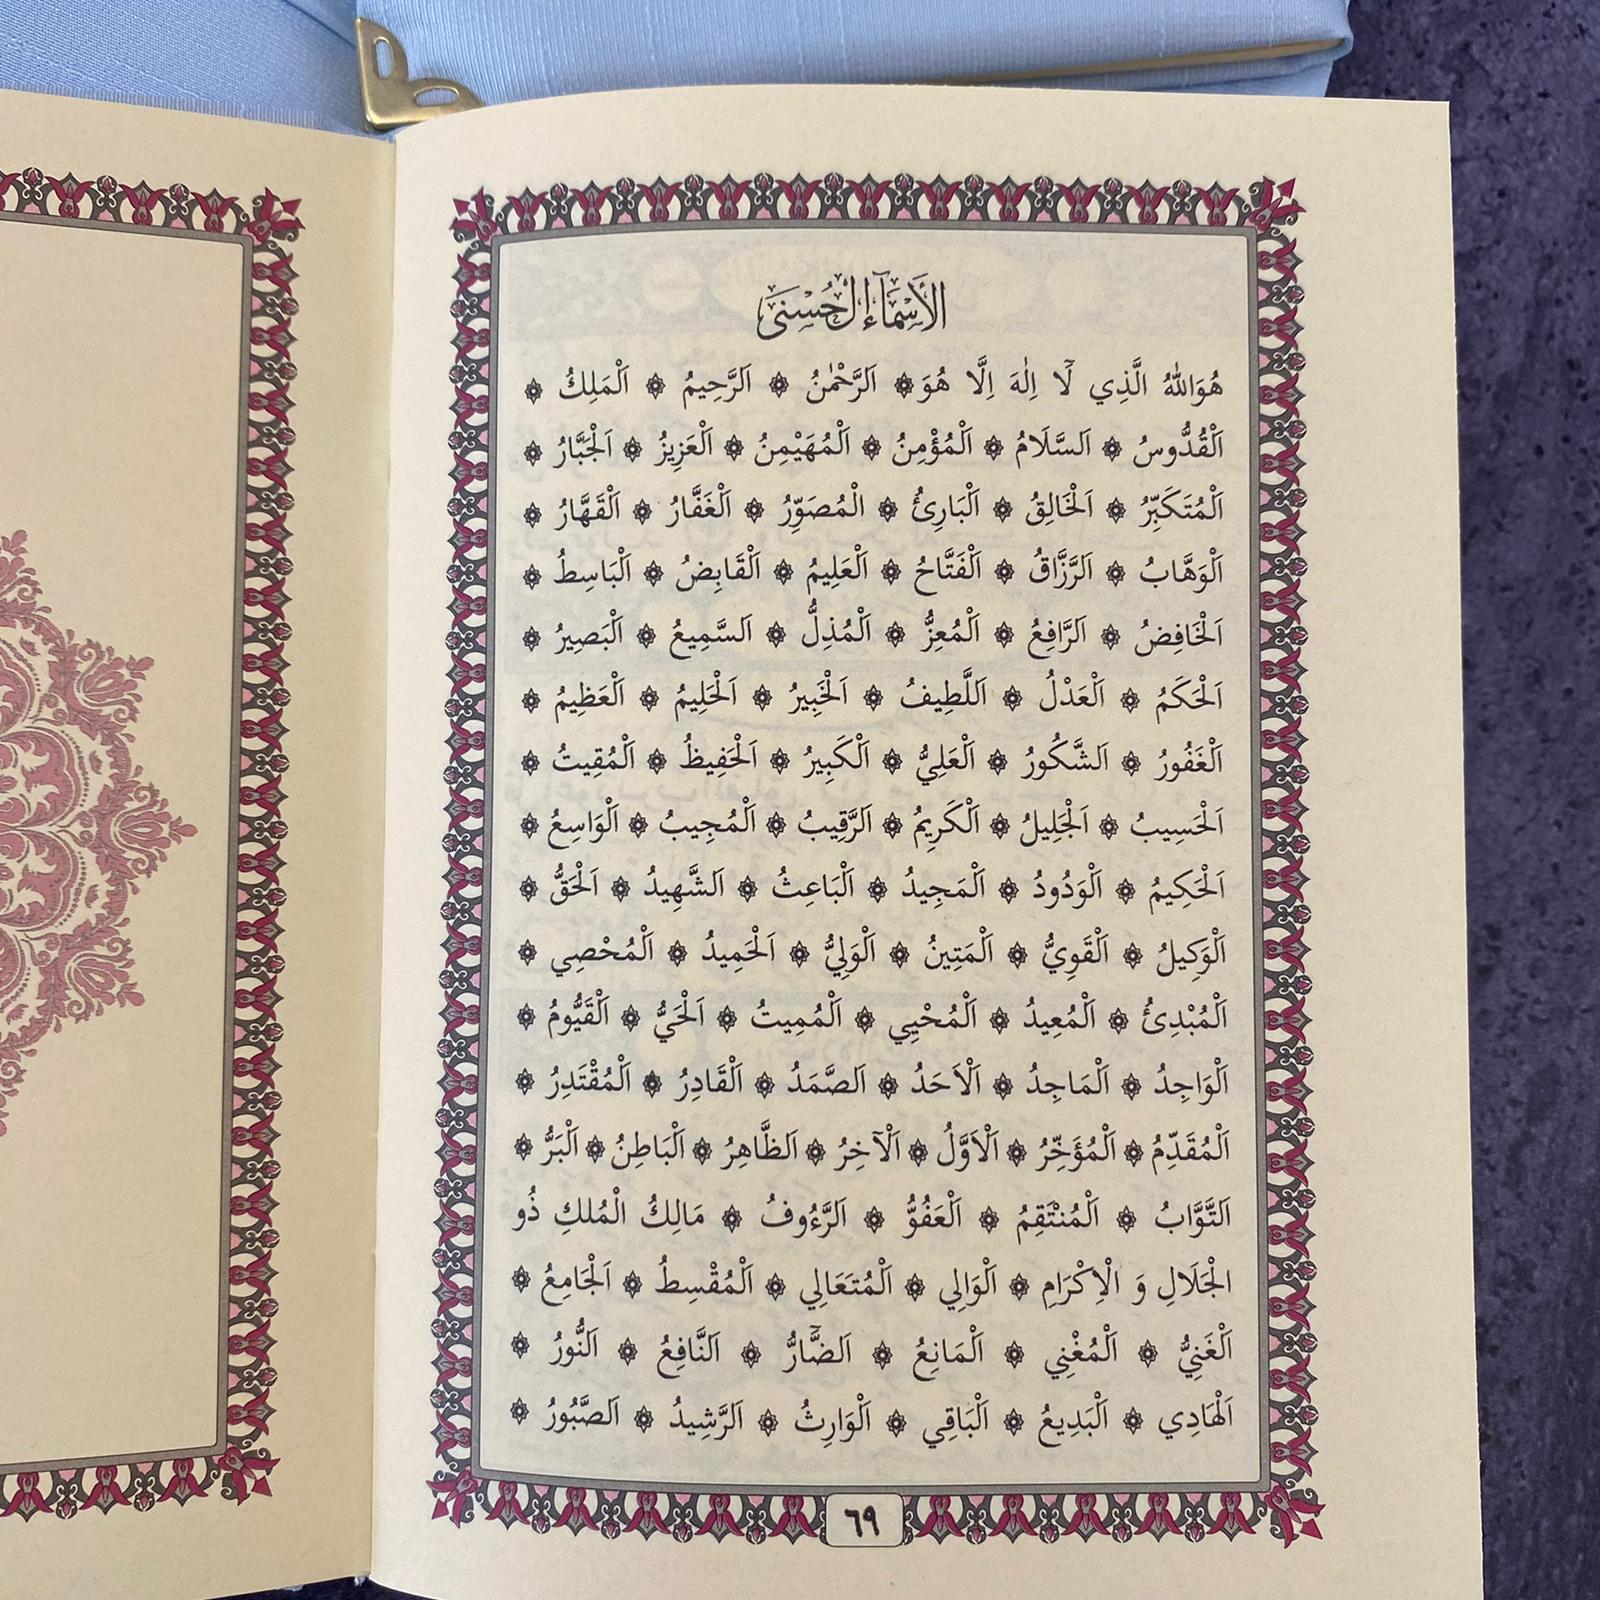 الأَسْمَآءُ الْحُسْنَى
هُوَاللّٰهُ الَّذِي لَٓا اِلٰهَ اِلَّا هُوَ ۞ اَلرَّحْمٰنُ ۞ اَلرَّحِيمُ ۞ اَلْمَلِكُ ۞
اَلْقُدُّوسُ ۞ اَلسَّلَامُ ۞ اَلْمُؤْمِنُ ۞ اَلْمُهَيْمِنُ ۞ اَلْعَزِيزُ ۞ اَلْجَبَّارُ ۞
اَلْمُتَكَبِّرُ ۞ اَلْخَالِقُ ۞ اَلْبَارِئُ ۞ اَلْمُصَوِّرُ ۞ اَلْغَفَّارُ ۞ اَلْقَهَّارُ ۞
اَلْوَهَّابُ ۞ اَلرَّزَّاقُ ۞ اَلْفَتَّاحُ ۞ اَلْعَلِيمُ ۞ اَلْقَابِضُ ۞ اَلْبَاسِطُ ۞
اَلْخَافِضُ ۞ اَلرَّافِعُ ۞ اَلْمُعِزُّ ۞ اَلْمُذِلُّ ۞ اَلسَّمِيعُ ۞ اَلْبَصِيرُ ۞
اَلْحَكَمُ ۞ اَلْعَدْلُ ۞ اَللَّطِيفُ ۞ اَلْخَبِيرُ ۞ اَلْحَلِيمُ ۞ اَلْعَظِيمُ ۞
اَلْغَفُورُ ۞ اَلشَّكُورُ ۞ اَلْعَلِيُّ ۞ اَلْكَبِيرُ ۞ اَلْحَفِيظُ ۞ اَلْمُقِيتُ ۞
اَلْحَسِيبُ ۞ اَلْجَلِيلُ ۞ اَلْكَرِيمُ ۞ اَلرَّقِيبُ ۞ اَلْمُجِيبُ ۞ اَلْوَاسِعُ ۞
اَلْحَكِيمُ ۞ اَلْوَدُودُ ۞ اَلْمَجِيدُ ۞ اَلْبَاعِثُ ۞ اَلشَّهِيدُ ۞ اَلْحَقُّ ۞
اَلْوَكِيلُ ۞ اَلْقَوِيُّ ۞ اَلْمَتِينُ ۞ اَلْوَلِيُّ ۞ اَلْحَمِيدُ ۞ اَلْمُحْصِي ۞
اَلْمُبْدِئُ ۞ اَلْمُعِيدُ ۞ اَلْمُحْيِي ۞ اَلْمُمِيتُ ۞ اَلْحَيُّ ۞ اَلْقَيُّومُ ۞
اَلْوَاجِدُ ۞ اَلْمَاجِدُ ۞ اَلْاَحَدُ ۞ اَلصَّمَدُ ۞ اَلْقَادِرُ ۞ اَلْمُقْتَدِرُ ۞
اَلْمُقَدِّمُ ۞ اَلْمُؤَخِّرُ ۞ اَلْاَوَّلُ ۞ اَلْآخِرُ ۞ اَلظَّاهِرُ ۞ اَلْبَاطِنُ ۞ اَلْبَرُّ ۞
اَلتَّوَّابُ ۞ اَلْمُنْتَقِمُ ۞ اَلْعَفُوُّ ۞ اَلرَّءُوفُ ۞ مَالِكُ الْمُلكِ ذُو
الْجَلَالِ وَ الْاِكْرَامِ ۞ اَلْوَالِي ۞ اَلْمُتَعَالِي ۞ اَلْمُقْسِطُ ۞ اَلْجَامِعُ ۞
اَلْغَنِيُّ ۞ اَلْمُغْنِي ۞ اَلْمَانِعُ ۞ اَلضَّٓارُّ ۞ اَلنَّافِعُ ۞ اَلنُّورُ ۞
اَلْهَادِي ۞ اَلْبَدِيعُ ۞ اَلْبَاقِي ۞ اَلْوَارِثُ ۞ اَلرَّشِيدُ ۞ اَلصَّبُورُ ۞
٦٩